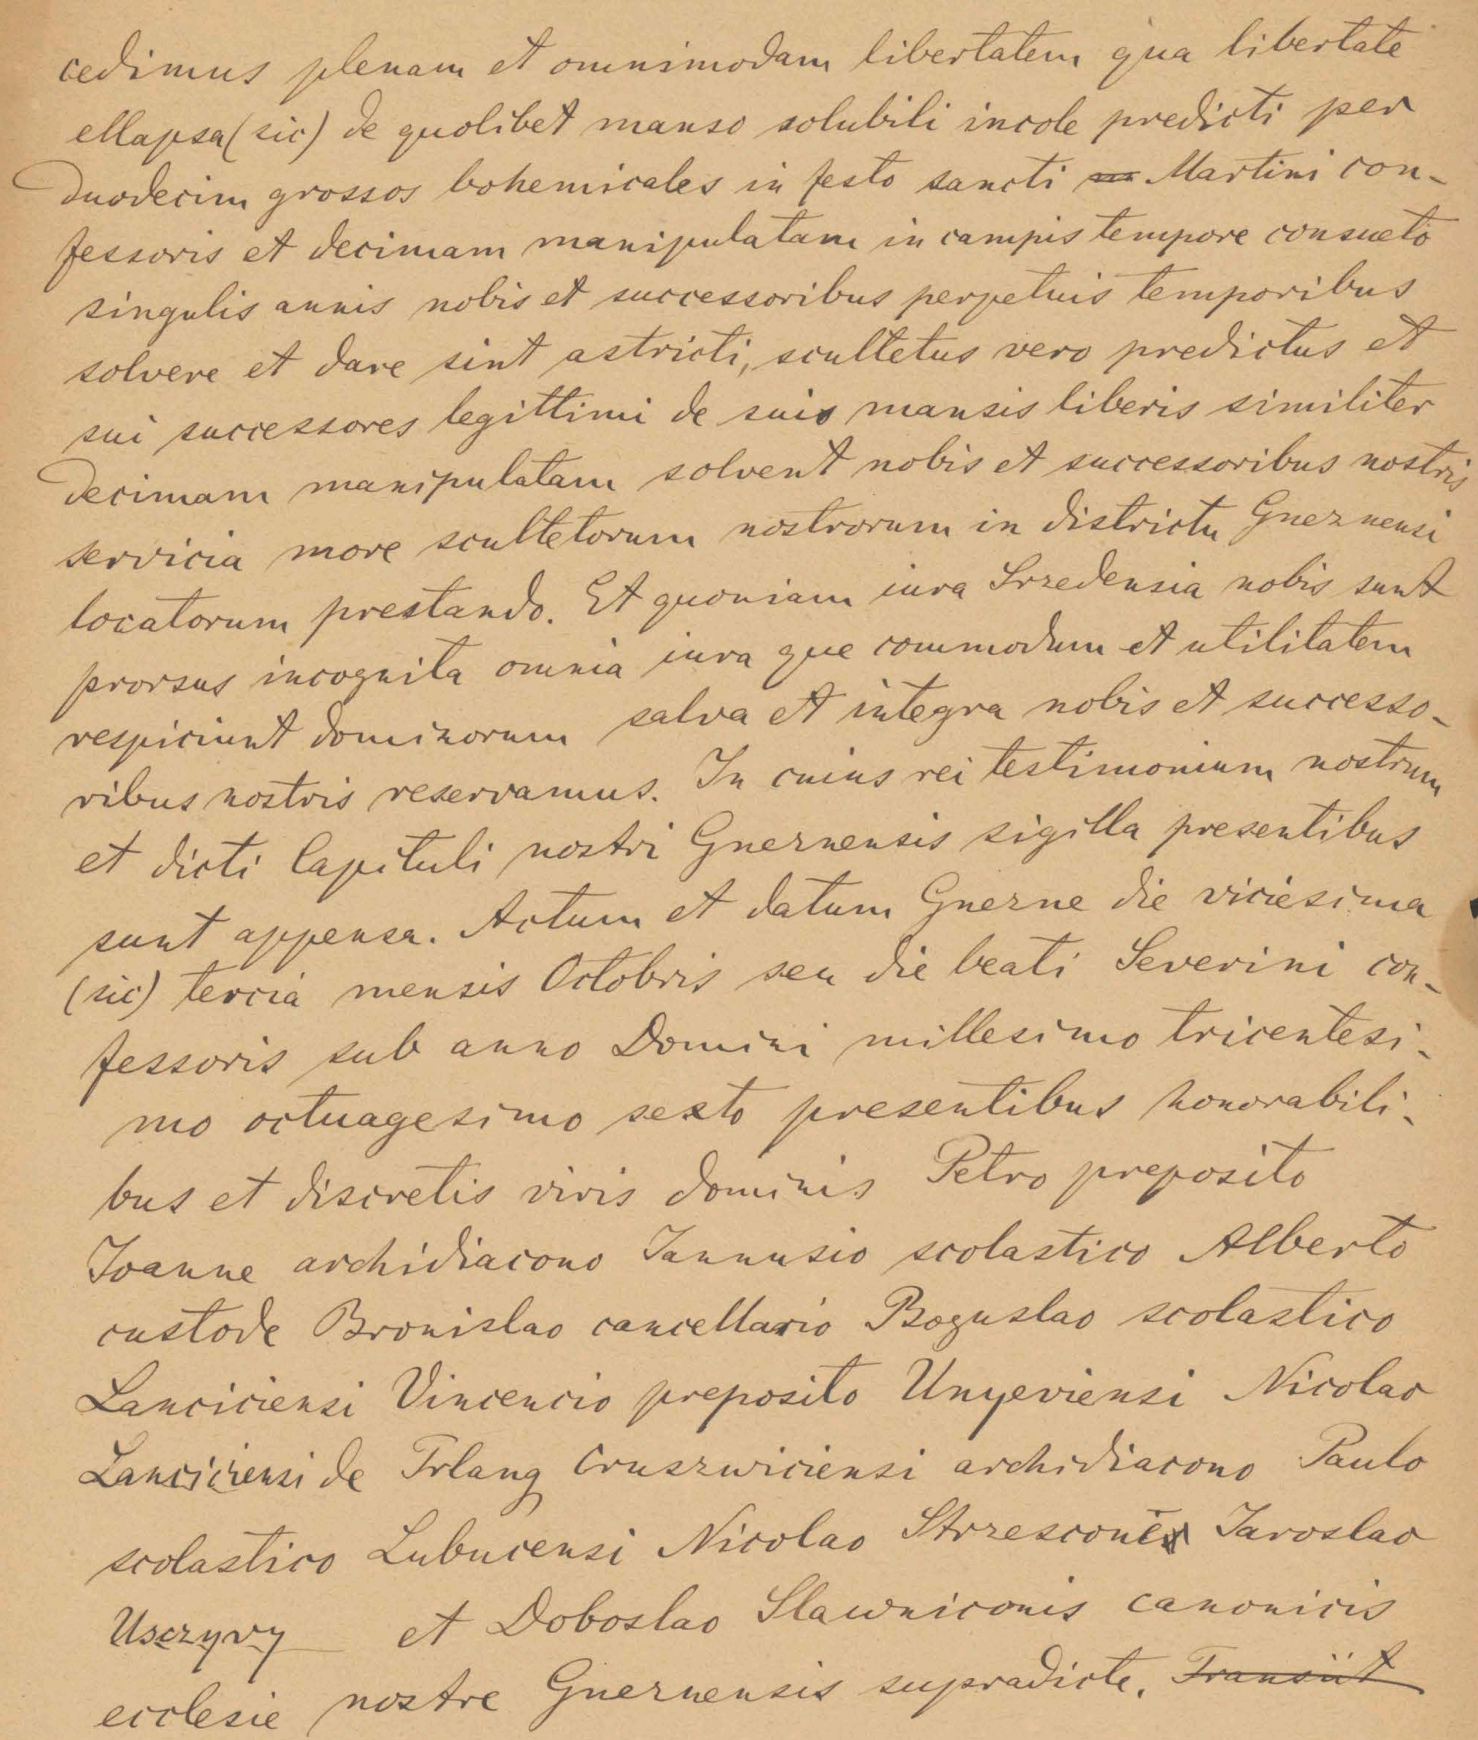 cedimus plenam et omnimodam libertatem qua libertate
ellapsa (sic) de quolibet manso solubili incole predicti per
duodecim grossos bohemicales in festo sancti Martini con-
fessoris et decimam manipulatam in campis tempore consueto
singulis annis nobis et successoribus perpetuis temporibus
solvere et dare sint astricti, scultetus vero predictus et
sui successores legittimi de suis mansis liberis similiter
decimam manipulatam solvent nobis et successoribus nostris
servicia more scultetorum nostrorum in districtu Gneznensi
locatorum prestando. Et quoniam iura Srzedensia nobis sunt
prorsus incognita omnia iura que commodum et utilitatem
respiciunt dominorum salva et integra nobis et successo-
ribus nostris reservamus. In cuius rei testimonium nostrum
et dicti Capituli nostri Gneznensis sigilla presentibus
sunt appensa. Actum et datum Gnezne die viciesima
(sic) tercia mensis Octobris seu die beati Severini con-
fessoris sub anno Domini millesimo tricentesi-
mo octuagesimo sexto presentibus honorabili-
bus et discretis viris dominis Petro preposito
Joanne archidiacono Jannusio scolastico Alberto
custode Bronislao cancellario Boguslao scolastico
Lanciciensi Vincencio preposito Unyeviensi Nicolao
Lanciciensi de Trlang Cruszwiciensi archidiacono Paulo
scolastico Lubucensi Nicolao Strzesconis Jaroslao
Usczyvy et Doboslao Slawniconis canonicis
ecclesie nostre Gneznensis supradicte. Transiit